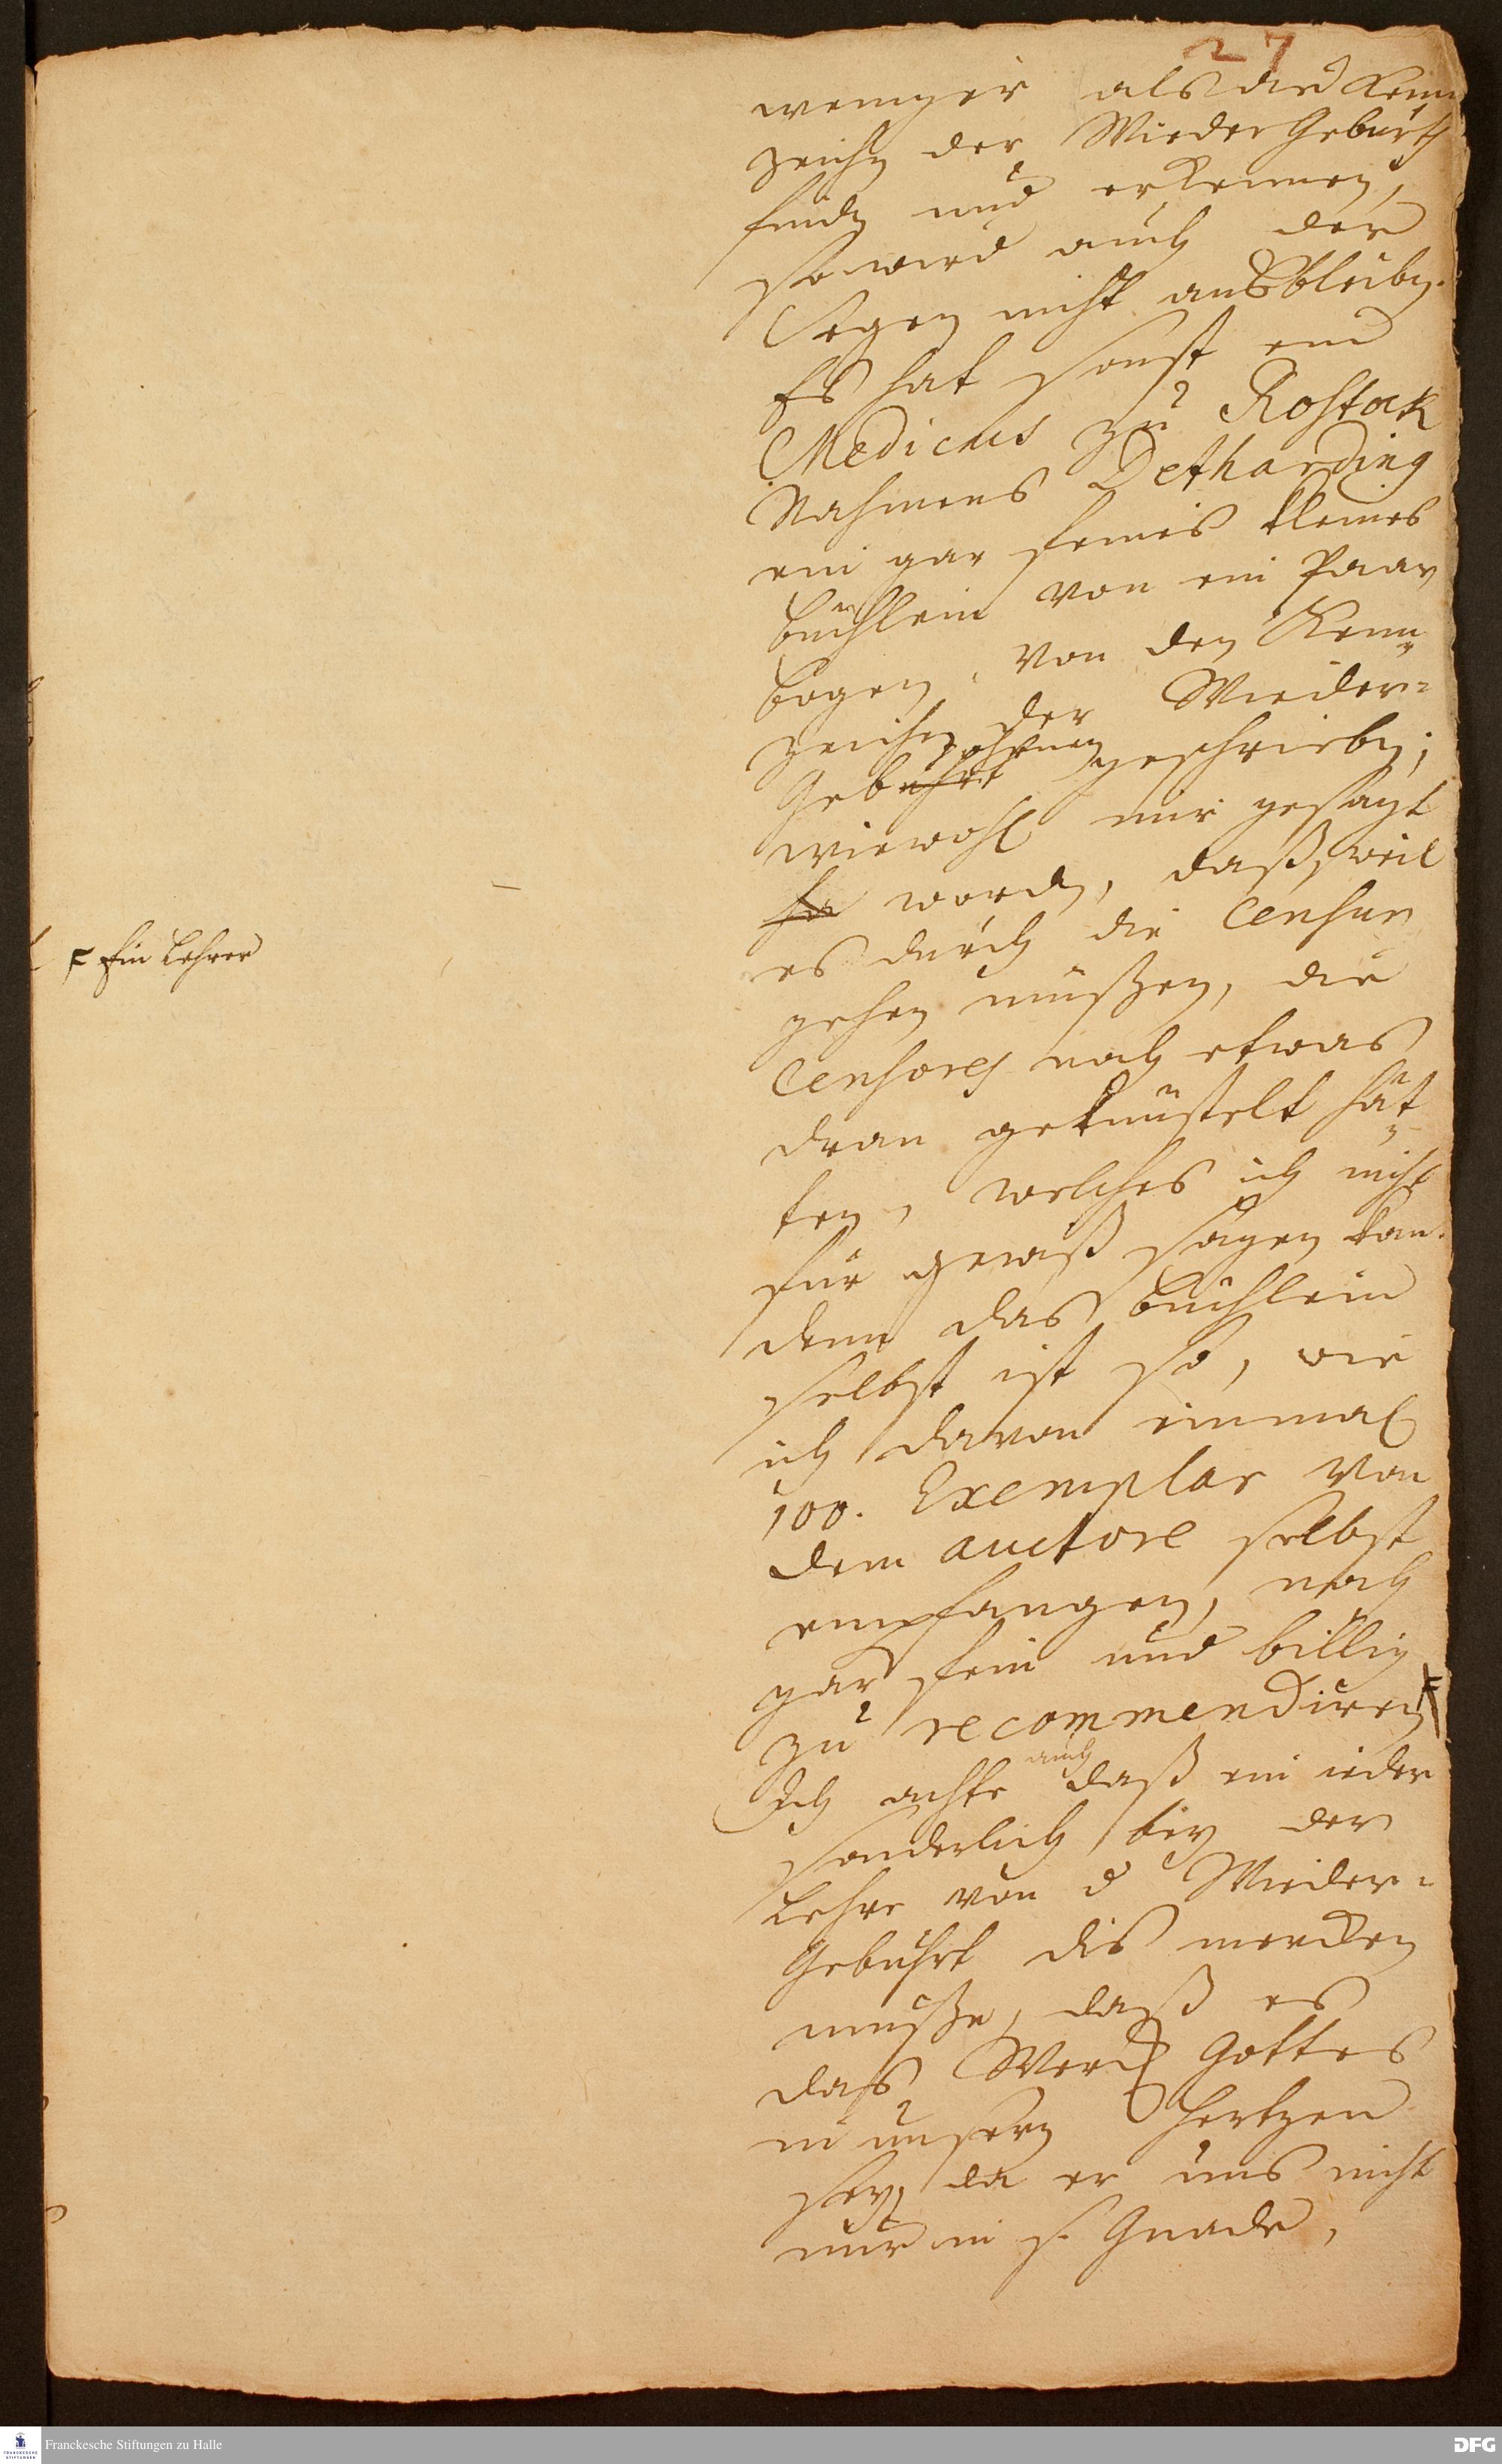 27
weniger als die Kenn
zeichen der Wieder Geburth
finden und erkennen,
so wird auch der
Segen nicht ausbleiben.
Es hat sonst ein
Medicus zu Rostok
Nahmens Detharding
ein gar feines kleines
büchlein von ein Paar
bogen, von den Kenn
zeichen der Wieder-
Gebohrnen geschrieben;
wiewohl mir gesagt
worden, daß, weil
es durch die Censur
gehen müßen, die
Censores noch etwas
dran gekünstelt hät
ten, welches ich nicht
für gewiß sagen kan.
denn das büchlein
selbst ist so, wie
ich davon einmal
100. Exemplar von
dem auctore selbst
empfangen, noch
gar fein und billig
zu recommendiren F
Ich achte auch daß ein ieder
sonderlich bey der
Lehre von d Wieder-
Gebuhrt dis mercken
muße, daß es
das Werck Gottes
in unsern Hertzen
sey, da er uns nicht
nur in s. Gnade,
F Ein Lehrer
Franckesche Stiftungen zu Halle
DFG